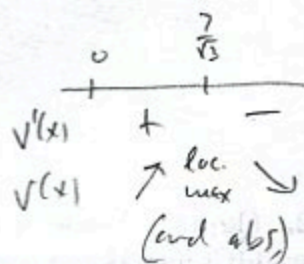 0 7/√3
V'(x) + −
V(x) ↗ loc. ↘
max
(and abs)